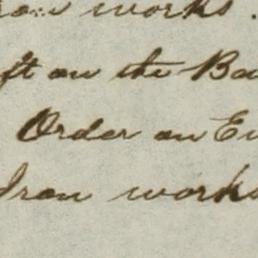 Iron works.
ft on the Ba
Order on Eu
Iron works